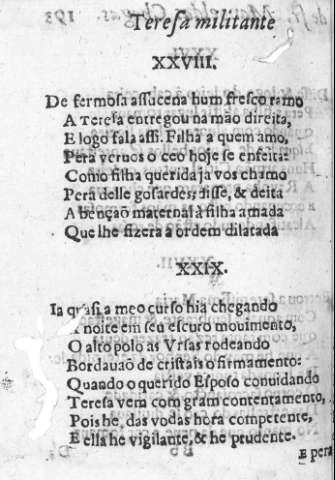 Teresa militante
XXVIII.
De fermosa assucena hum fresco ramo
A Teresa entregou na mão direita,
E logo fala assi. Filha a quem amo,
Pera veruos o ceo hoje se enfeita:
Como filha querida ja vos chamo
Pera delle gosardes; disse, & deita
A bençaõ maternal à filha amada
Que lhe fizera a ordem dilatada
XXIX.
Ia quasi a meo curso hia chegando
A noite em seu escuro mouimento,
O alto polo as Vrsas rodeando
Bordauaõ de cristais o firmamento:
Quando o querido Esposo conuidando
Teresa vem com gram contentamento,
Pois he, das vodas hora competente,
E ella he vigilante, & he prudente.
E pera